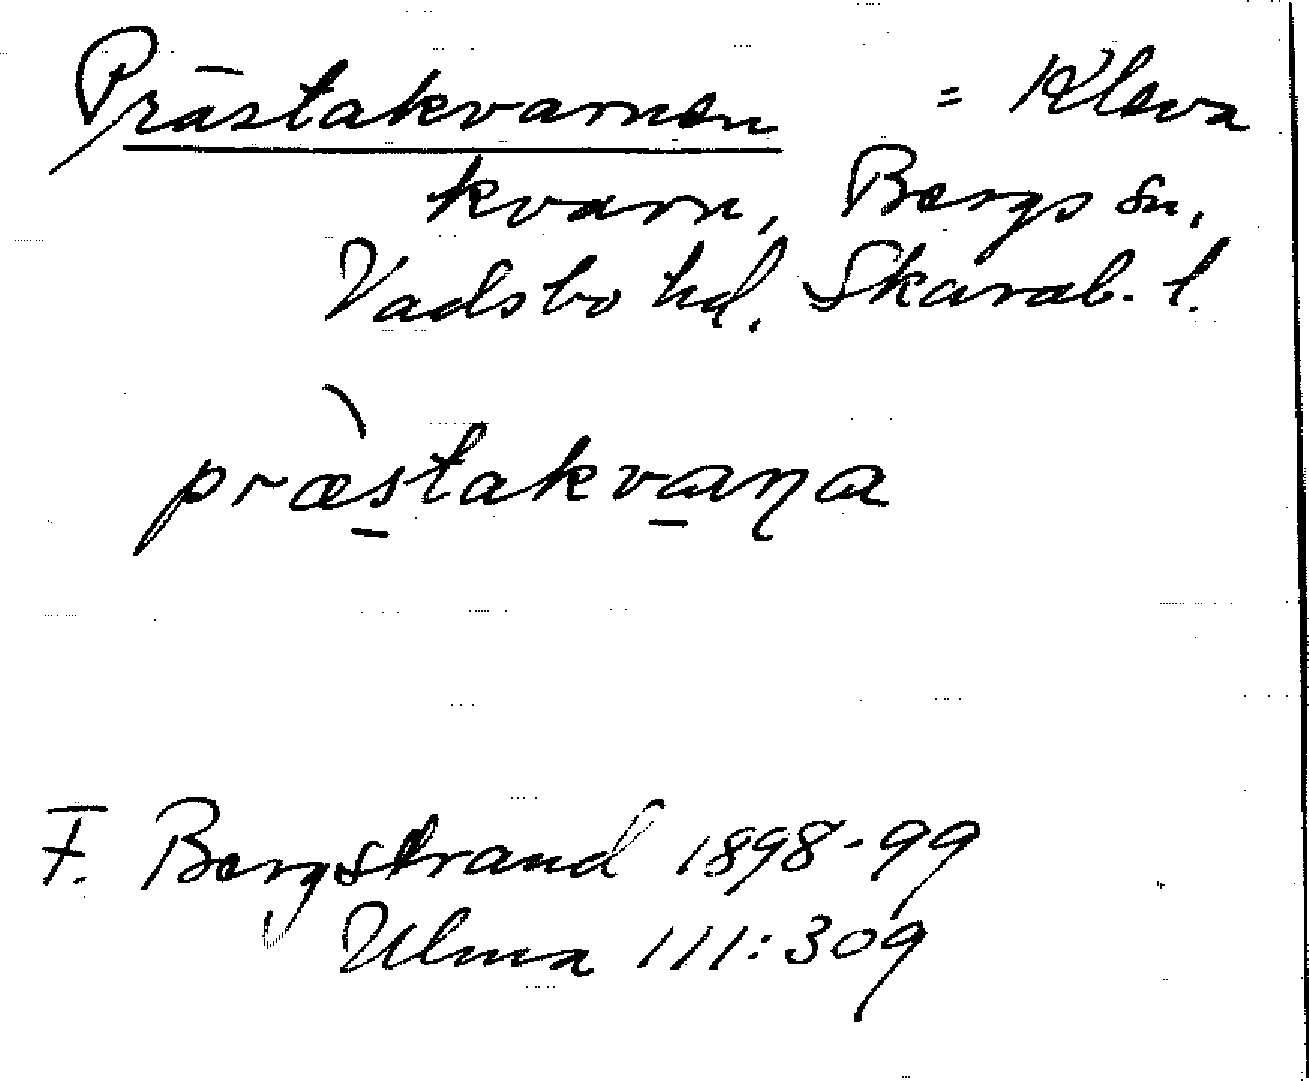 Prästakvarnen = Kleva
kvarn, Bergs sn,
Vadsbo hd. Skarab. l.
præ̀stakvaṇa
F. Bergstrand 1898-99
Ulma 111:309